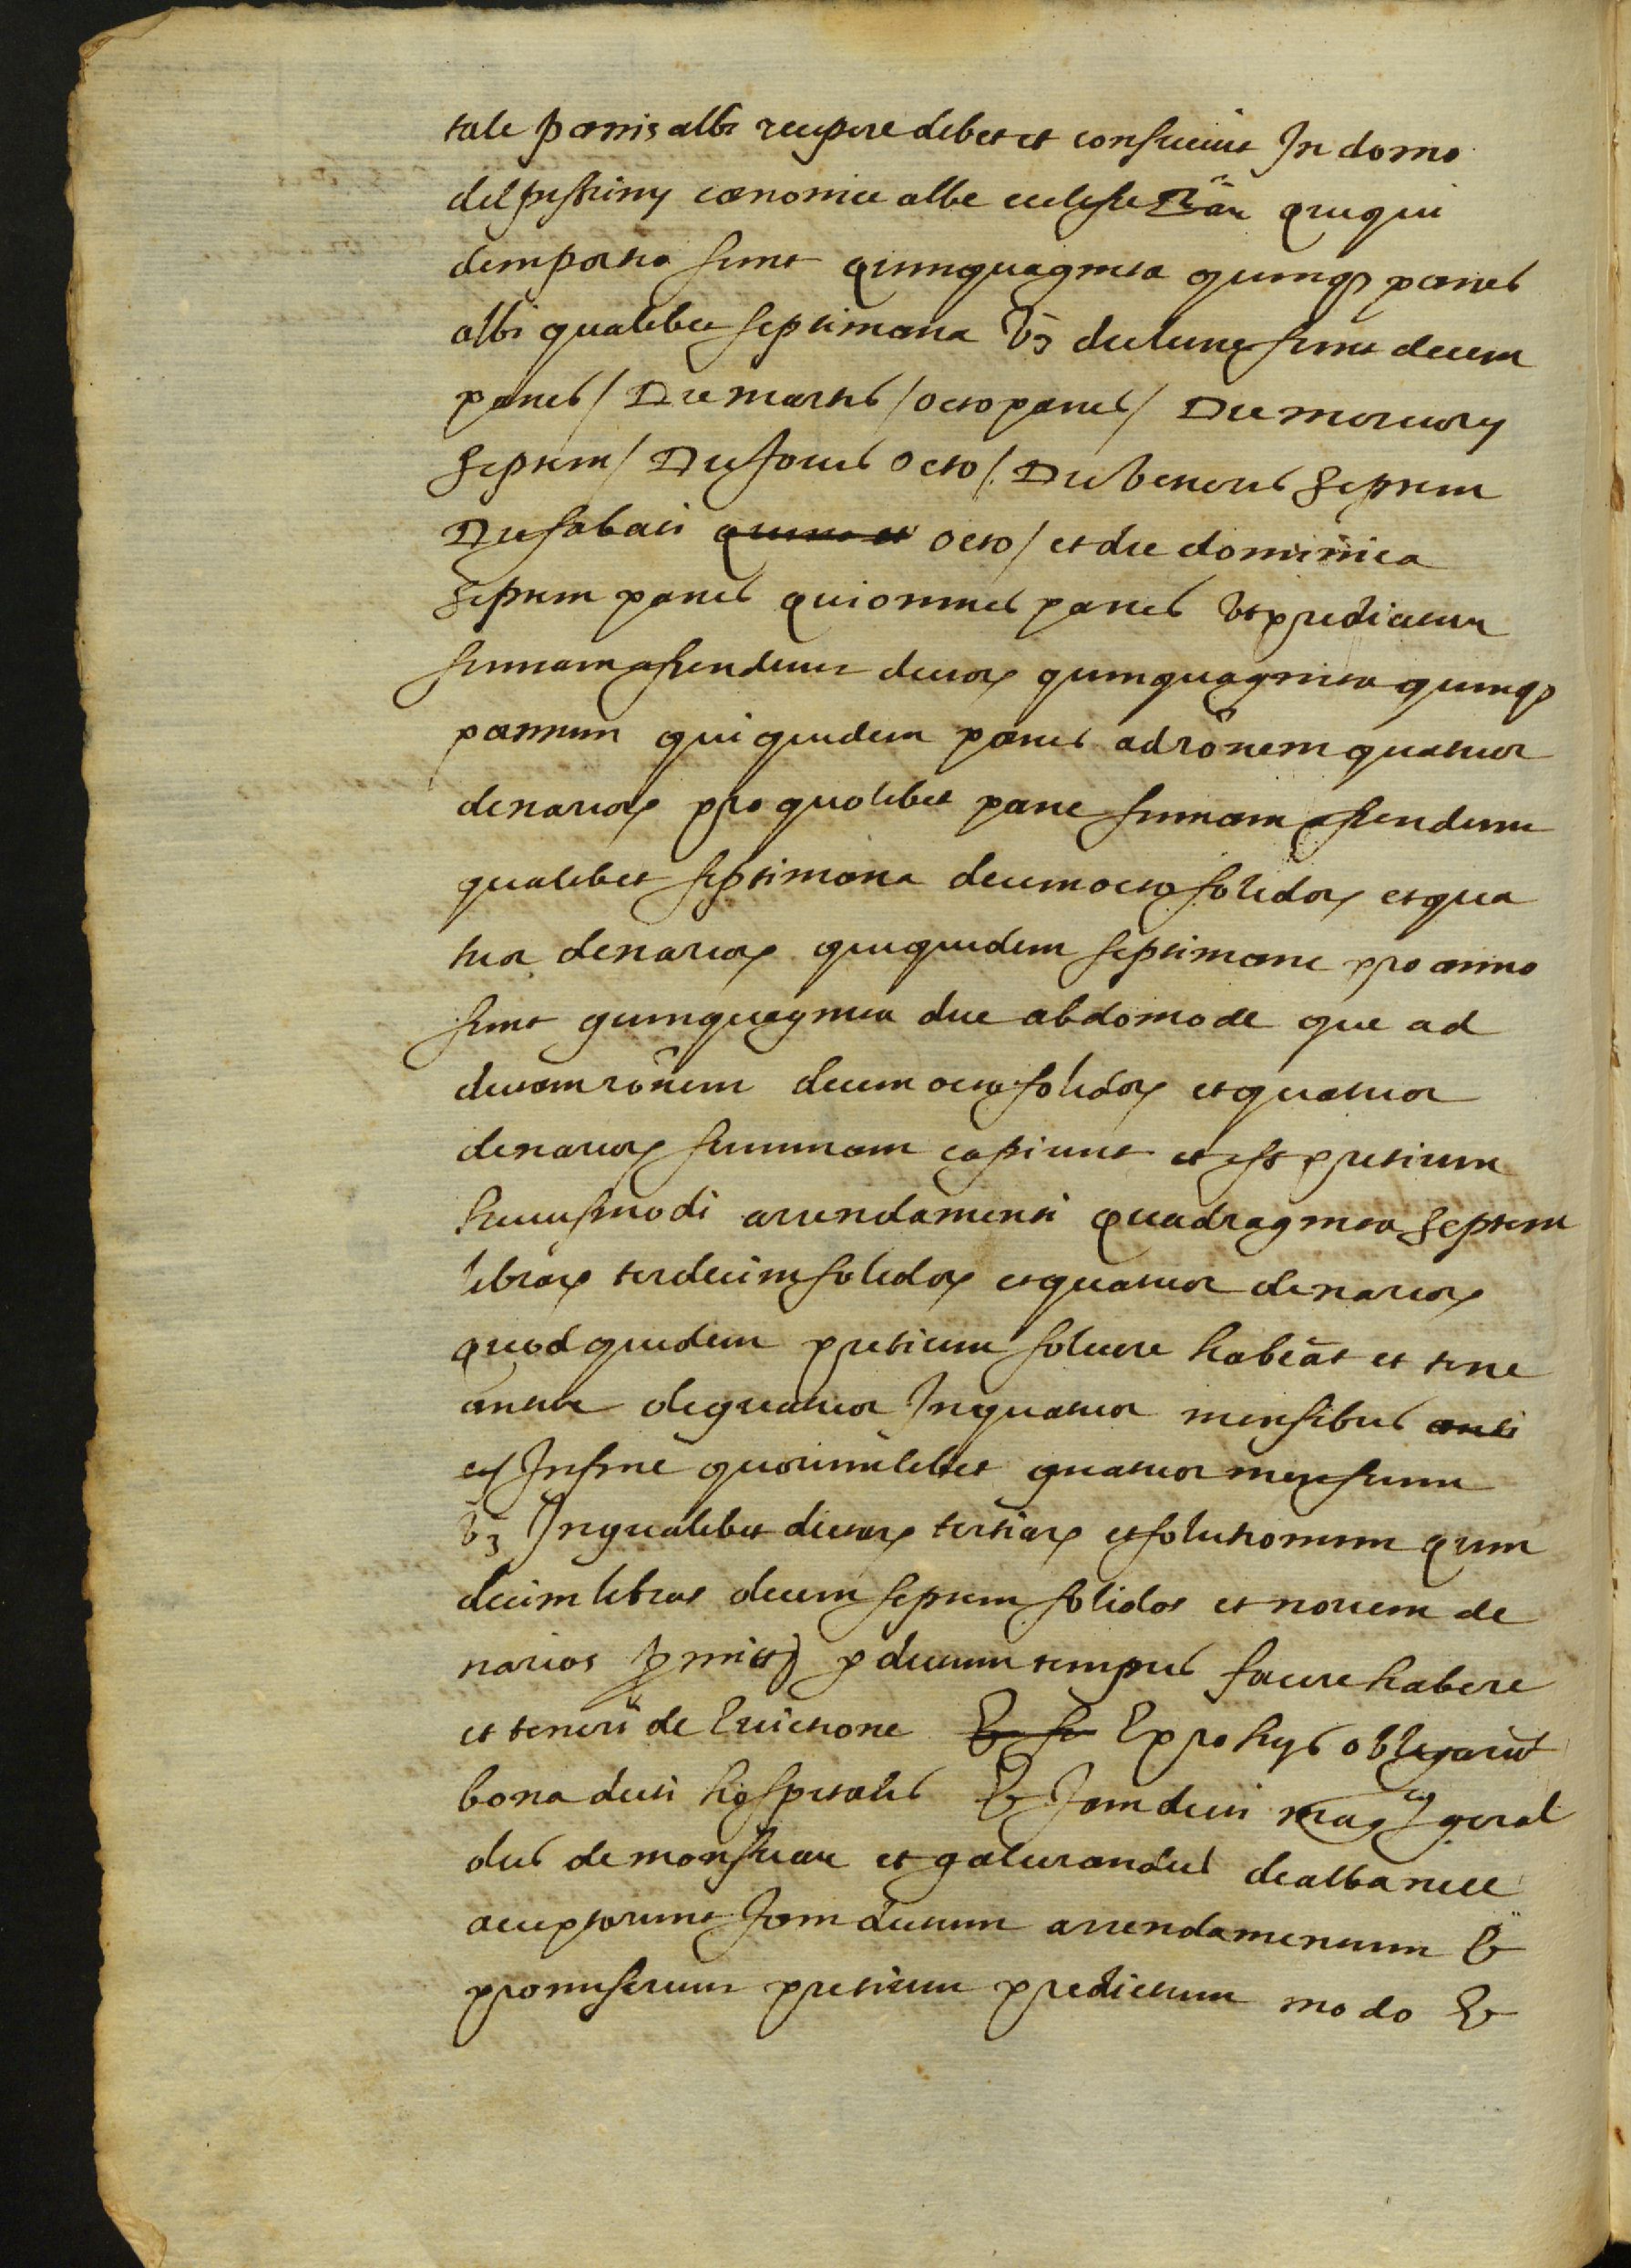 tale panis albi recipere debet et consuevit In domo
del pistriny canonice albe ecclesie que qui
dem portio sunt quinquaginta quinqꝫ panes
albi qualibet septimana vꝫ die lune sunt decem
panes / Die martis / octo panes / Die mercury
septem / Die Jovis octo / Die veneris septem
Die sabati octo / et die dominica
septem panes qui omnes panes ut predicitur
sumam asendunt dictorꝝ quinquaginta quinqꝫ
panium qui quidem panes ad rōnem quatuor
denariorꝝ pro quolibet pane sumam asendunt
qualibet septimana decim octo solidorꝝ et qua
tuor denariorꝝ que quidem septimane pro anno
sunt quinquaginta due abdomode que ad
dictam rōnem decim octo solidorꝝ et quatuor
denariorꝝ summam capiunt et est pretium
huiusmodi arrendamenti quadraginta septem
librarꝝ terdecim solidorꝝ et quatuor denariorꝝ
quod quidem pretium solvere habeāt et tene
antur de quatuor In quatuor mensibus
et In fine quorumlibet quatuor mensium
vꝫ In qualibet dictarꝝ tertiarꝝ et solutionum quin
decim libras decem septem solidos et novem de
narios ꝓmittꝫ ꝑ dictum tempus facere habere
et teneri de Evictione E pro hys obligarūt
bona dicti hospitalis & Jam dicti mag geral
dus de monsuar et galcerandus de albanell
acceptarunt Jam dictum arrendamentum &
promiserunt pretium predictum modo &